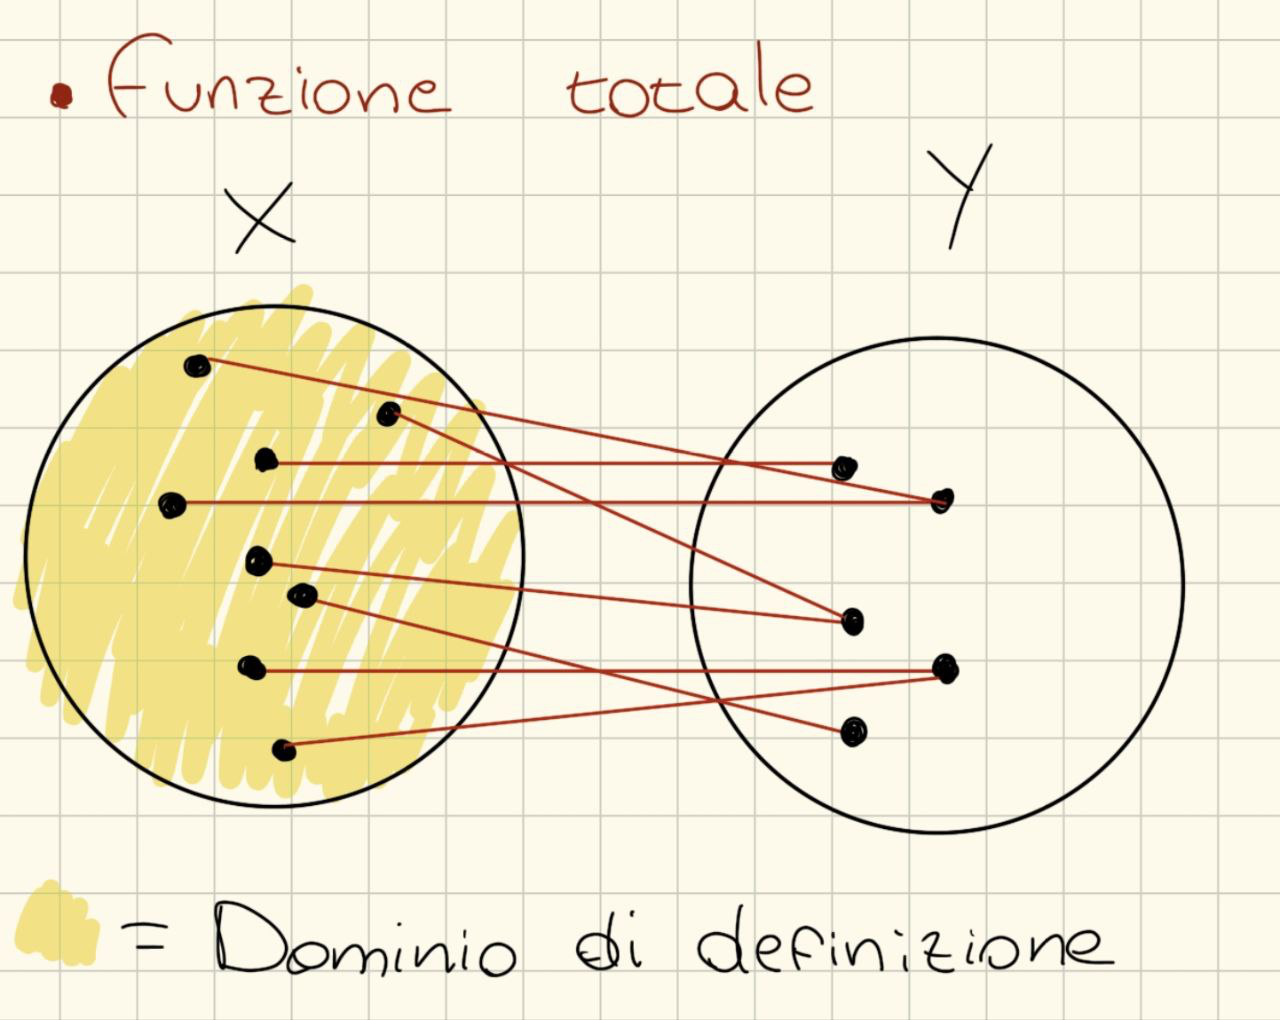 • Funzione totale
X Y
= Dominio di definizione